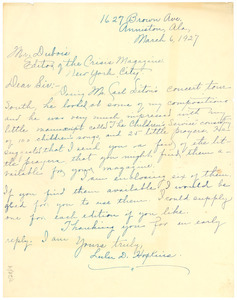 1627 Brown Ave.
Anniston, Ala,
March 6, 1927
Mr. Dubois
Editor of the Crisis Magazine
New York City.
Dear Sir:
During Mr. Carl Diton's concert tour
South, he looked at some of my compositions
and he was very much impressed with my
little manuscript called The Children's Service consisting
of 20 children's songs and 25 little prayers. He
suggests that I send you a few of the lit-
tle prayers that you might find them a-
vailable for your magazine.
I am enclosing six of them
If you find them available, I would be
glad for you to use them. I could supply
one for each edition if you like.
Thanking you for an early
reply. I am
Yours truly,
D. Hopkins.